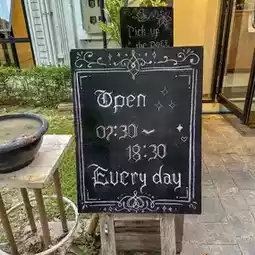 Pick up
the
Open
07:30 ~
18:30
Every day